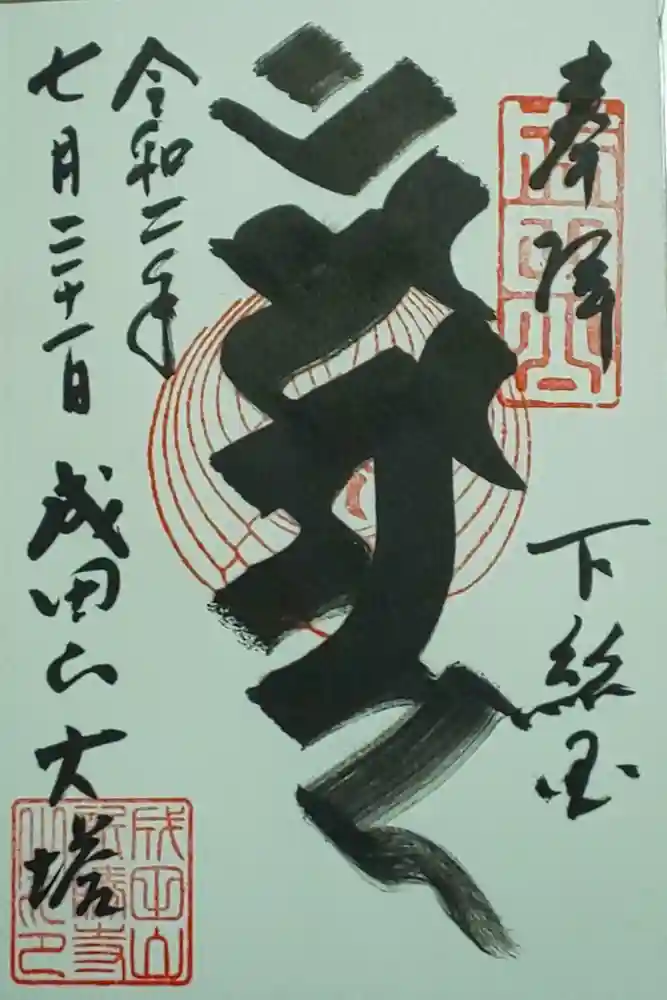 奉拝
下総国
令和二年
七月二十一日
成田山大塔
成田山
新勝寺